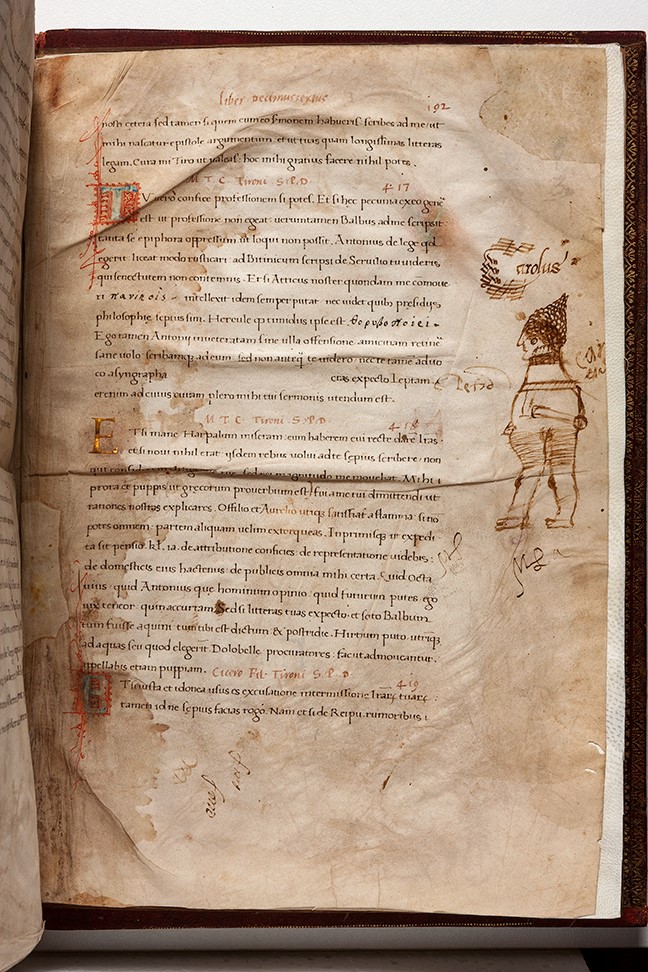 liber decimussextus
192
nosti cetera sed tamen si quem cum eo sermonem habueris scribes ad me ut
mihi nascatur epistole argumentum et ut tuas quam longissimas litteras
legam. Cura mi Tiro ut valeas: hoc mihi gratius facere nihil potes.
M. T. C. Tironi S. P. D. 417
TU vero confice professionem si potes. Et si hec pecunia ex eo gene
est ut professione non egeat: veruntamen Balbus ad me scripsit
tanta se epiphora oppressum ut loqui non possit. Antonius de lege qd
egerit. liceat modo rusticari. ad Bitinicum scripsi de Seruilio tu videris,
qui senectutem non contemnis. Et si Atticus noster quondam me comoue
ri πανικοις intellexit idem semper putat nec videt quib presidiis
philosophie septus sim. Hercule q timidus ipse est θορυβοποιει.
Ego tamen Antonii inveteratam sine ulla offensione amicitiam retine
sane volo scribamq ad eum. sed non anteq te videro. nec te tamen advo
co a syngrapha ctas expecto Leptam
erenim ad cuius ruiam plero mihi tui sermonis utendum est.
M. T. C. Tironi S. P. D. 418
ETsi mane Harpalum miseram: cum haberem cui recte dare lras
et si novi nihil erat. iisdem rebus volui ad te sepius scribere: non
magnitudo me mouebat. Mihi
prora et puppis ut grecorum proverbium est fuit a me tui dimittendi ut
rationes nostras explicares. Offilio et Aurelio utiq satisfiat a flamma. si nō
potes omnem: partem aliquam velim extorqueas. Inprimisq ut expedi
ta sit pensio kl. ia. de attributione conficies: de representatione videbis:
de domesticis eius hactenus: de publicis omnia mihi certa. Quid Octa
uius: quid Antonius que hominum opinio quid futurum putes. ego
vix teneor quin accurram Sed si litteras tuas expecto. et scito Balbum
tum fuisse aquini cum tibi est dictum & postridie. Hirtium puto utrūq
ad aquas seu quod elegerit. Dolobelle procuratores: fac ut admoueantur.
appellabis etiam puppiam. Cicero Fil. Tironi S. P. D
419
ETsi iusta et idonea usus es excusatione intermissione lrar tuar
tamen id ne sepius facias rogo. Nam et si de Reipu. rumoribus
Carolus